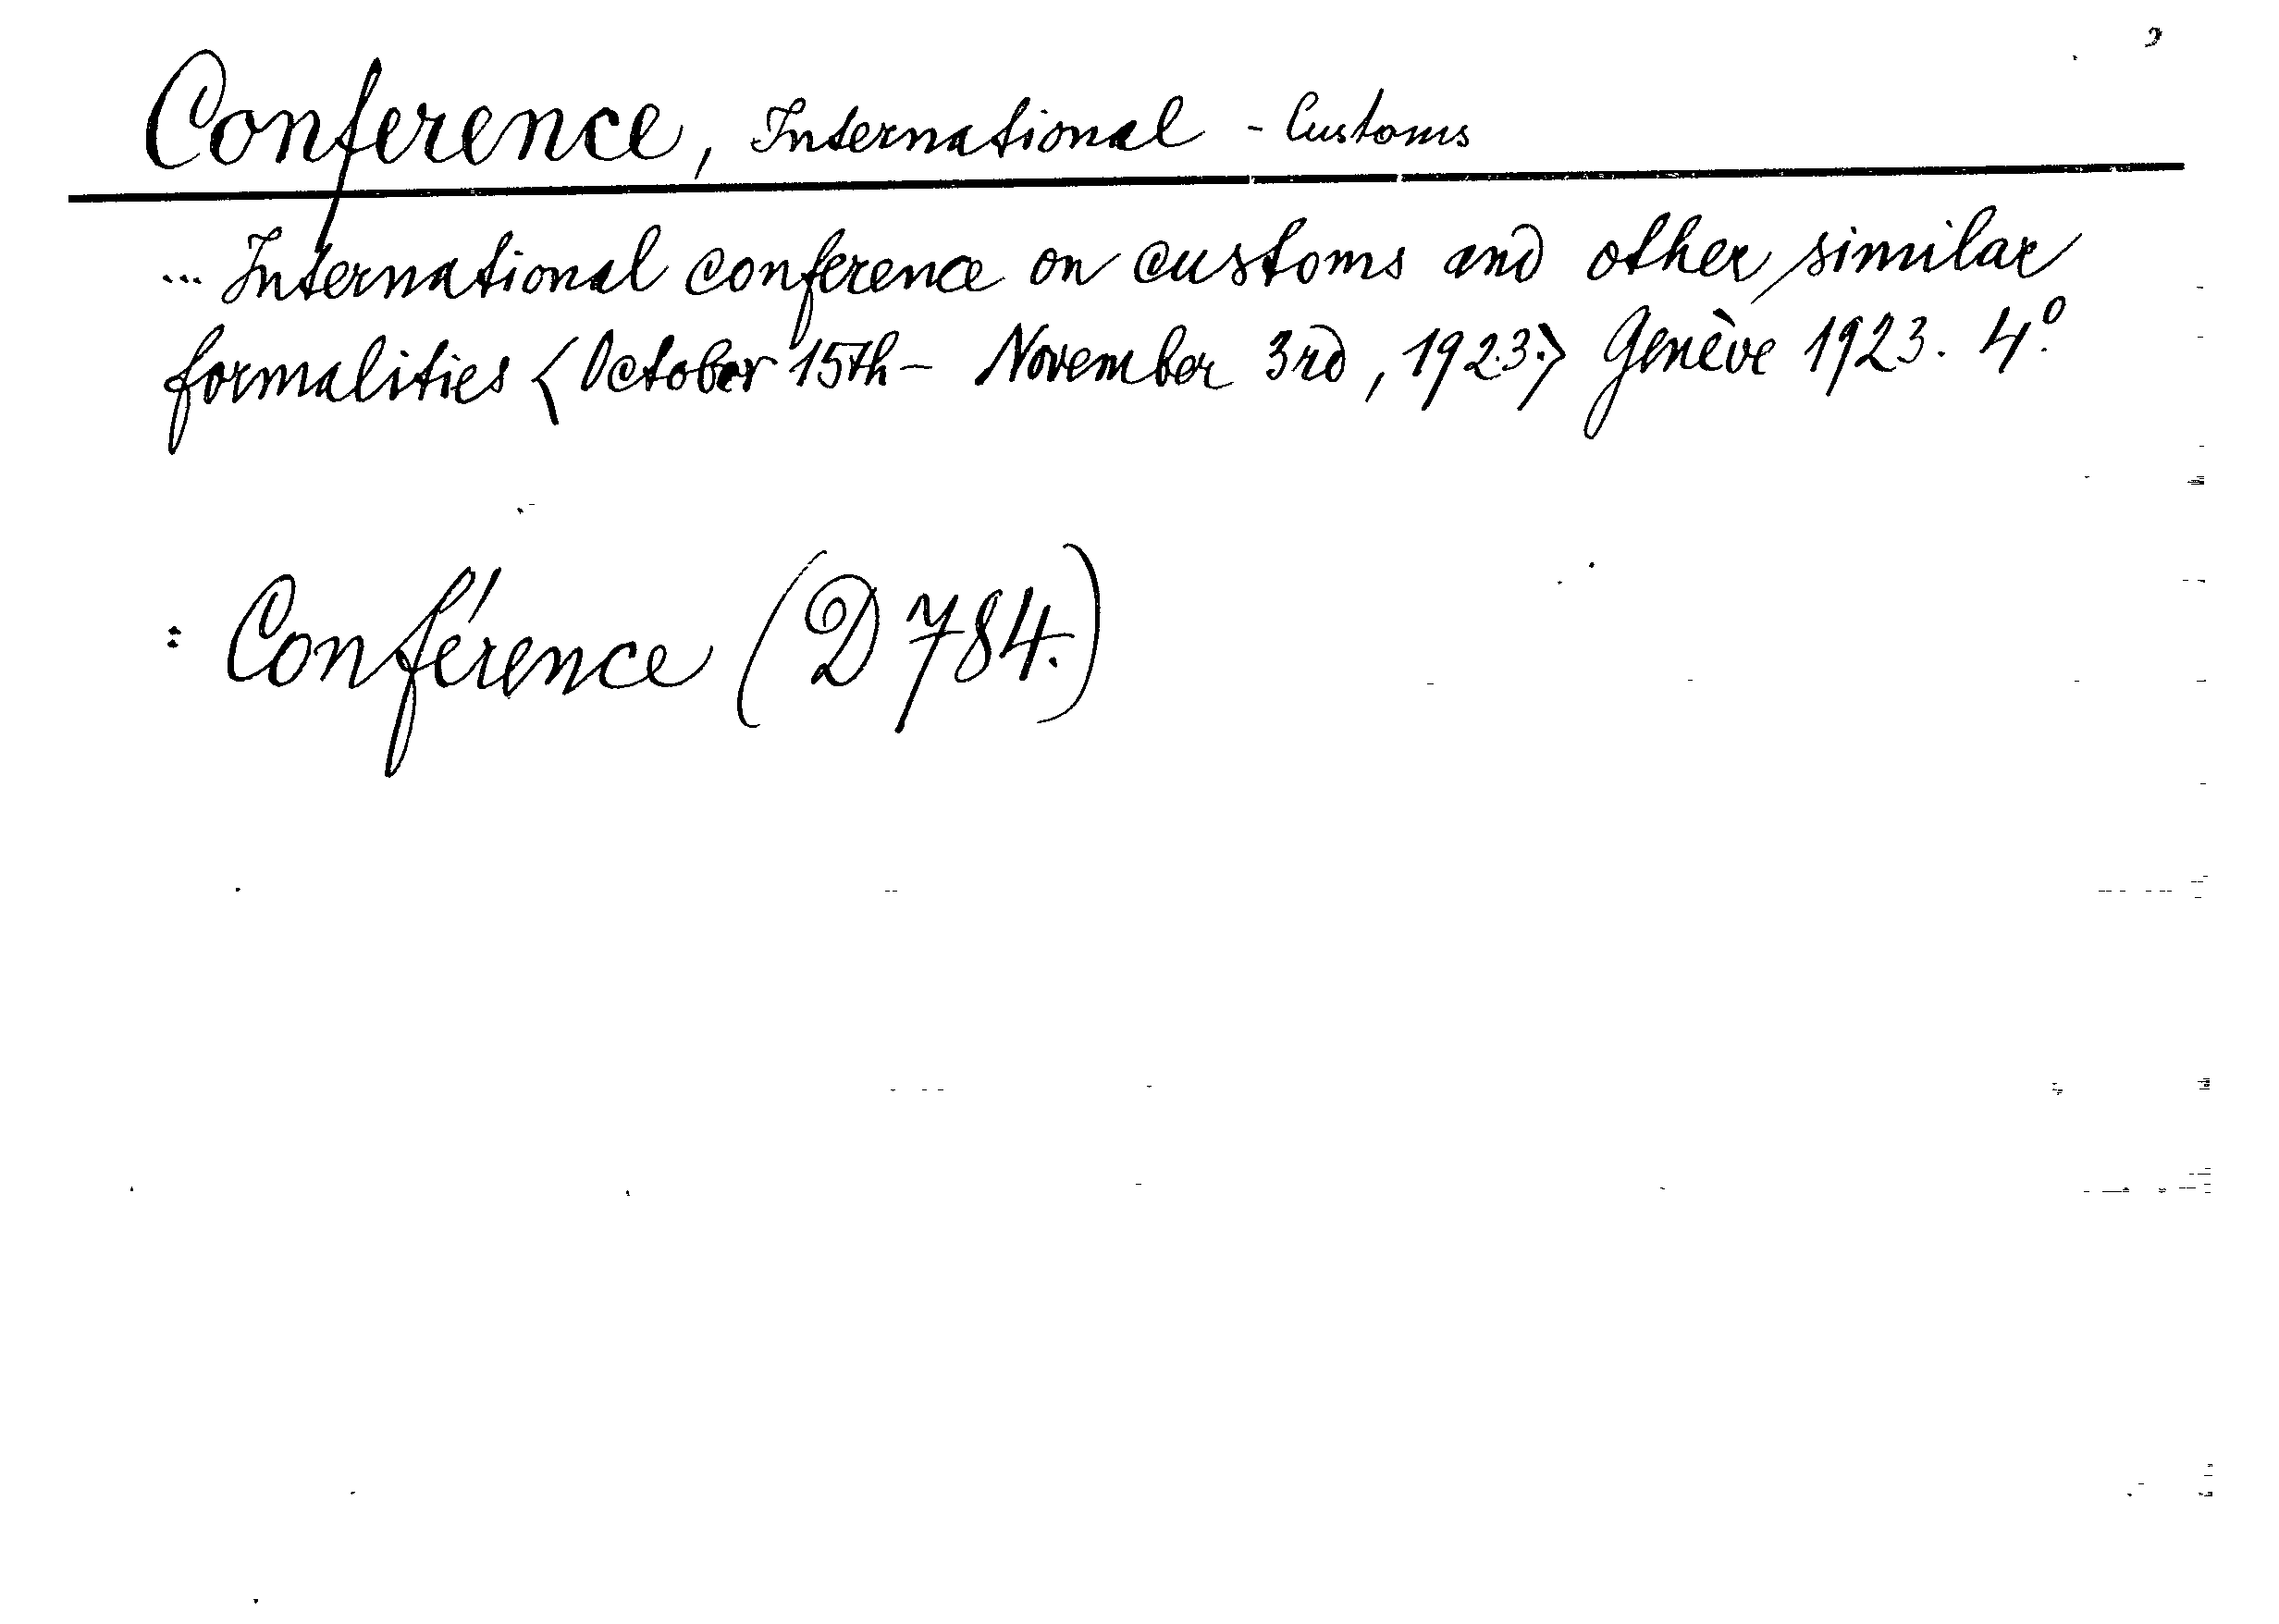 Conference, International - Customs
... International conference on customs and other similar
formalities <October 15th - November 3rd, 1923.> Genève 1923. 4°.
: Conférence (D 784.)